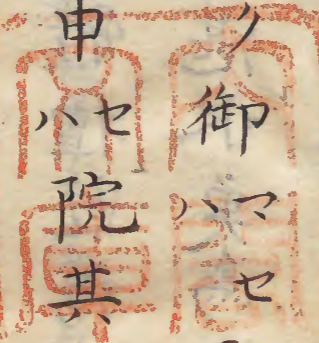 ノ御マセハ
申セハ院其